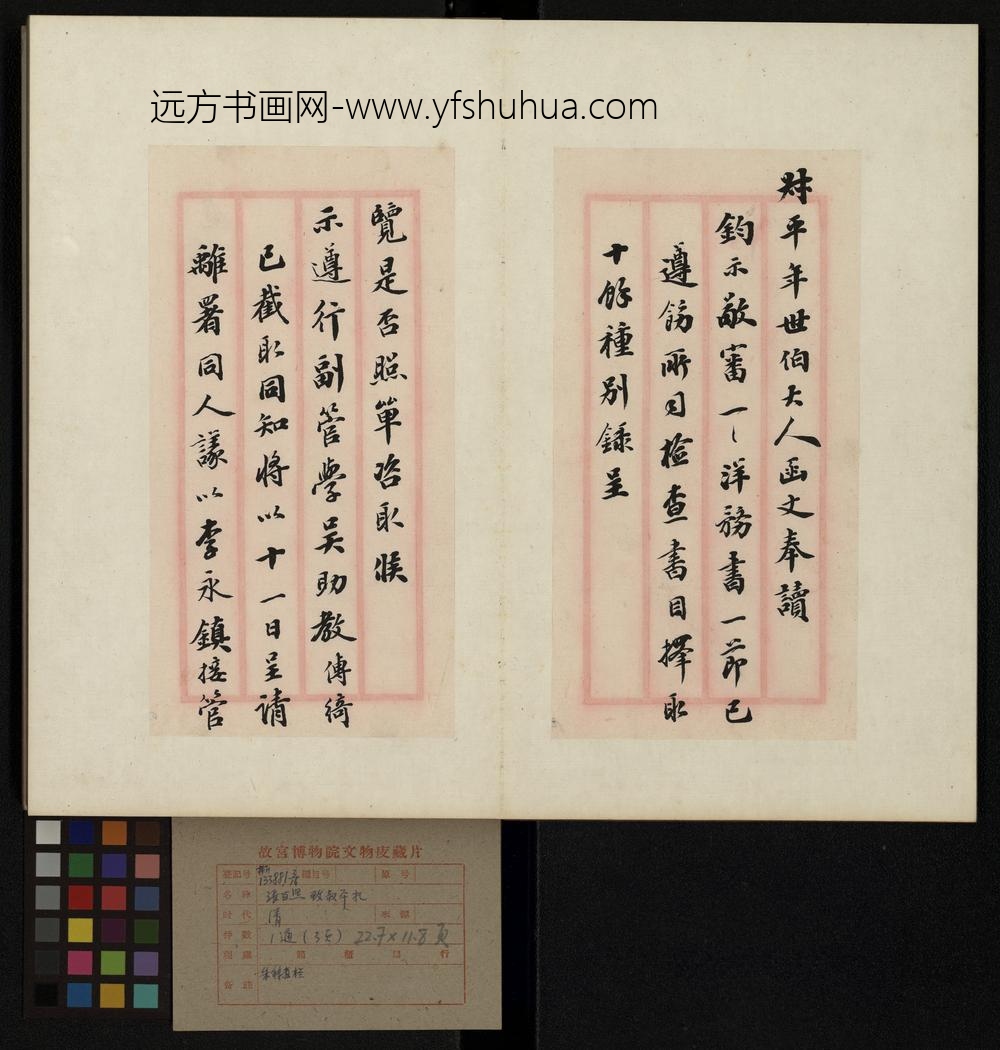 远方书画网-www.yfshuhua.com
尌平年世伯大人函丈奉讀
鈞示敬審一一洋務書一節已
遵飭所司檢查書目擇取
十餘種別錄呈
覽是否照單咨取候
示遵行副管學吳助教傳綺
已截取同知將以十一日呈請
離署同人議以李永鎮接管
故宮博物院文物皮藏片
登記号 新133891 号
原号
名称 張百熙致叔平札
时代 清
来源
件数 1通(3頁) 22.7×11.8 頁
备註 朱絲直栏